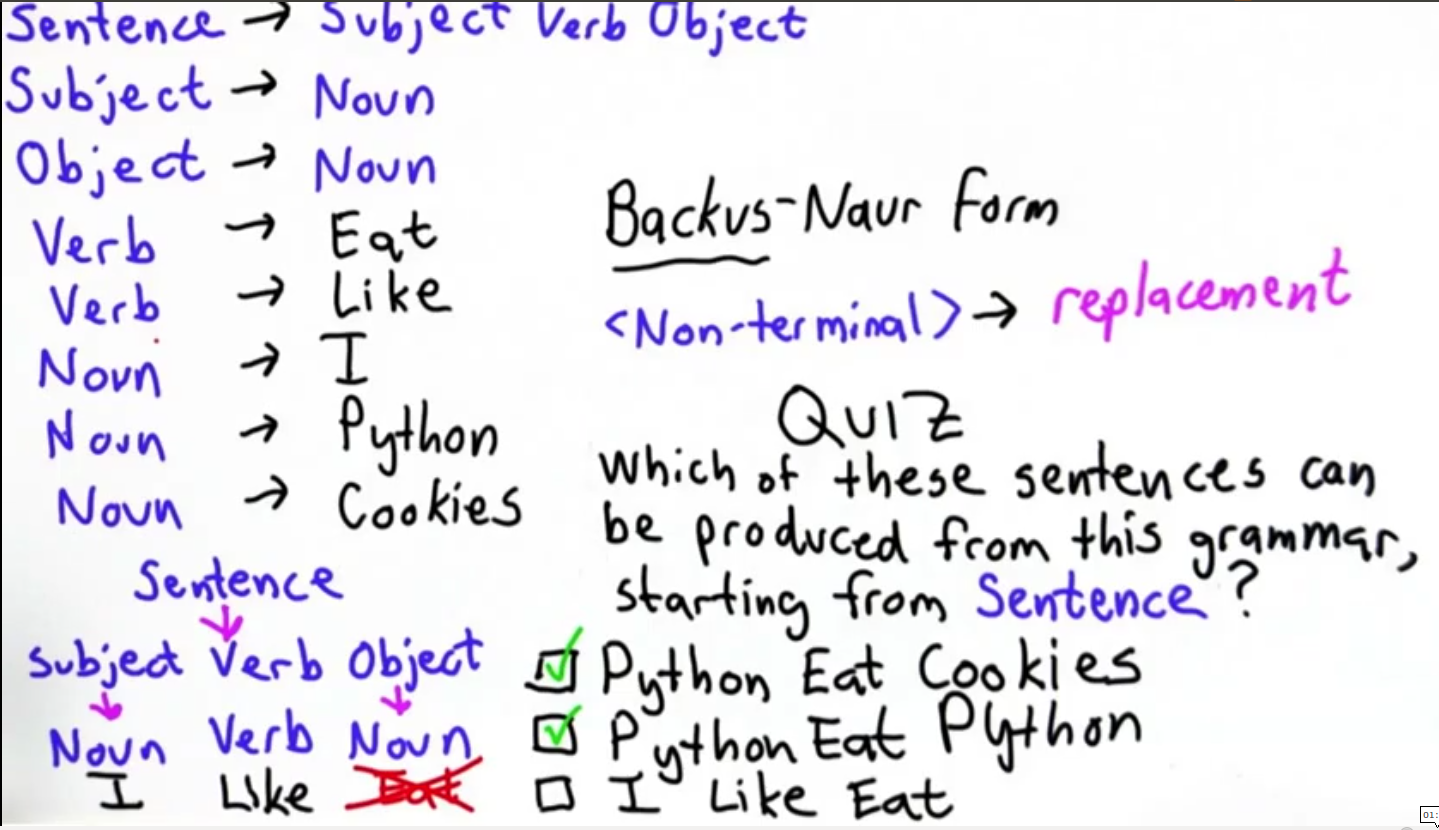 Sentence → Subject Verb Object
Subject → Noun
Object → Noun
Verb → Eat
Verb → Like
Noun → I
Noun → Python
Noun → Cookies
Sentence
↓
Subject Verb Object
↓ ↓
Noun Verb Noun
I Like Eat
Backus-Naur Form
<Non-terminal> → replacement
QUIZ
Which of these sentences can
be produced from this grammar,
starting from Sentence?
Python Eat Cookies
Python Eat Python
I Like Eat
01: